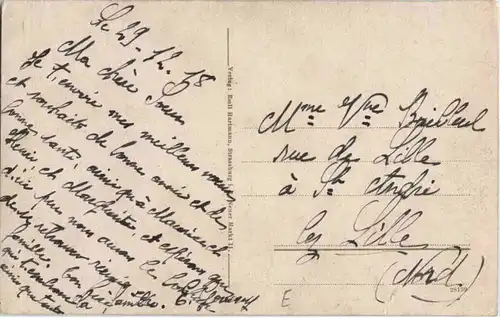 Le 29-12-18
Ma chère Soeur
Je t'envoie mes meilleurs voeux
et souhaits de bonne année et de
bonne santé ainsi qu'à Maurice et
Henri et Marguerite et espérons que
d'ici peu nous aurons le bonheur
de se retrouver réunis
famille. Ton
qui t'embrasse
Verlag: Emil Hartmann, Strassburg i. Markt
Mme Vve Bailleul
rue de Lille
à St André
lez Lille
(Nord)
E